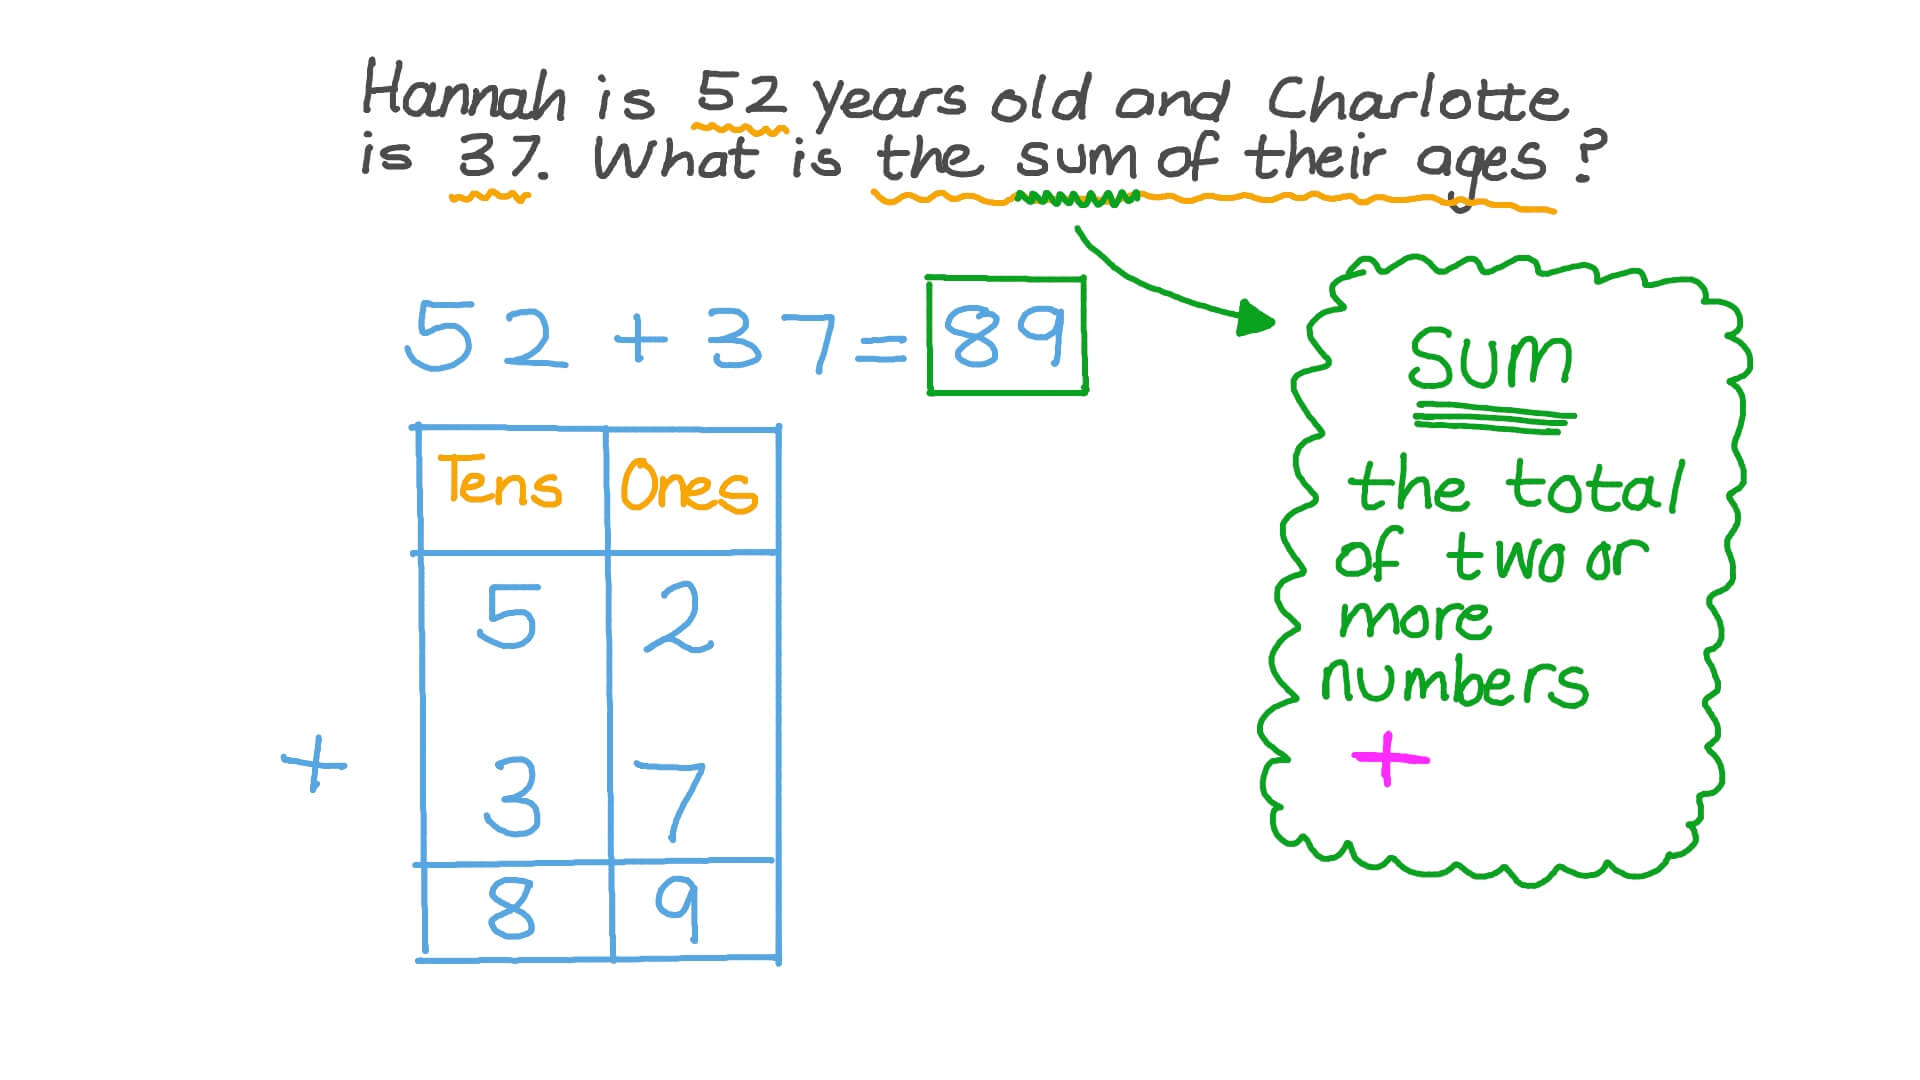 Hannah is 52 years old and Charlotte
is 37. What is the sum of their ages?
52 + 37 = 89
Tens Ones
5 2
+ 3 7
8 9
sum
the total
of two or
more
numbers
+